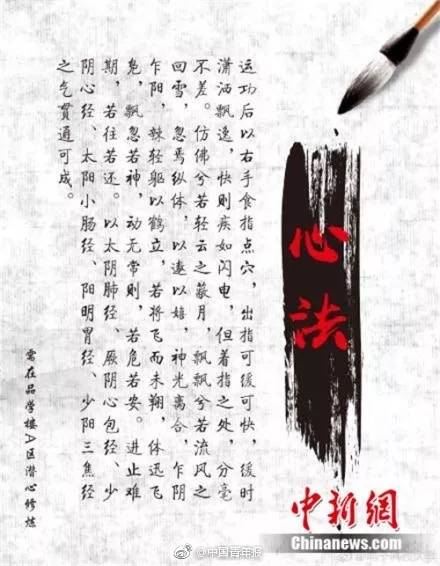 心法
运功后以右手食指点穴，出指可缓可快，缓时
潇洒飘逸，快则疾如闪电，但着指之处，分毫
不差。仿佛兮若轻云之蔽月，飘飘兮若流风之
回雪，忽焉纵体，以遨以嬉，神光离合，乍阴
乍阳，竦轻躯以鹤立，若将飞而未翔，体迅飞
凫，飘忽若神，动无常则，若危若安。进止难
期，若往若还。以太阴肺经、厥阴心包经、少
阴心经、太阳小肠经、阳明胃经、少阳三焦经
之气贯通可成。
需在品学楼A区潜心修炼
中新網
Chinanews.com
@中国青年报